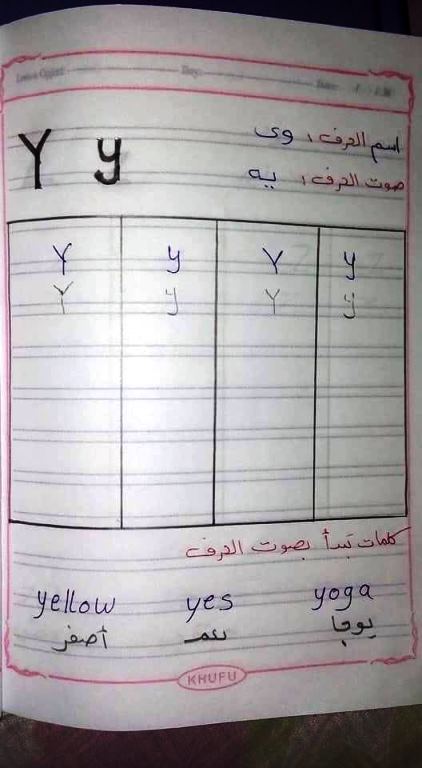 Lesson Object: Day: Date: / / 20
Y y اسم الحرف : وى
صوت الحرف : يه
Y y Y y
Y y Y y
كلمات تبدأ بصوت الحرف
yellow yes yoga
أصفر نعم يوجا
KHUFU